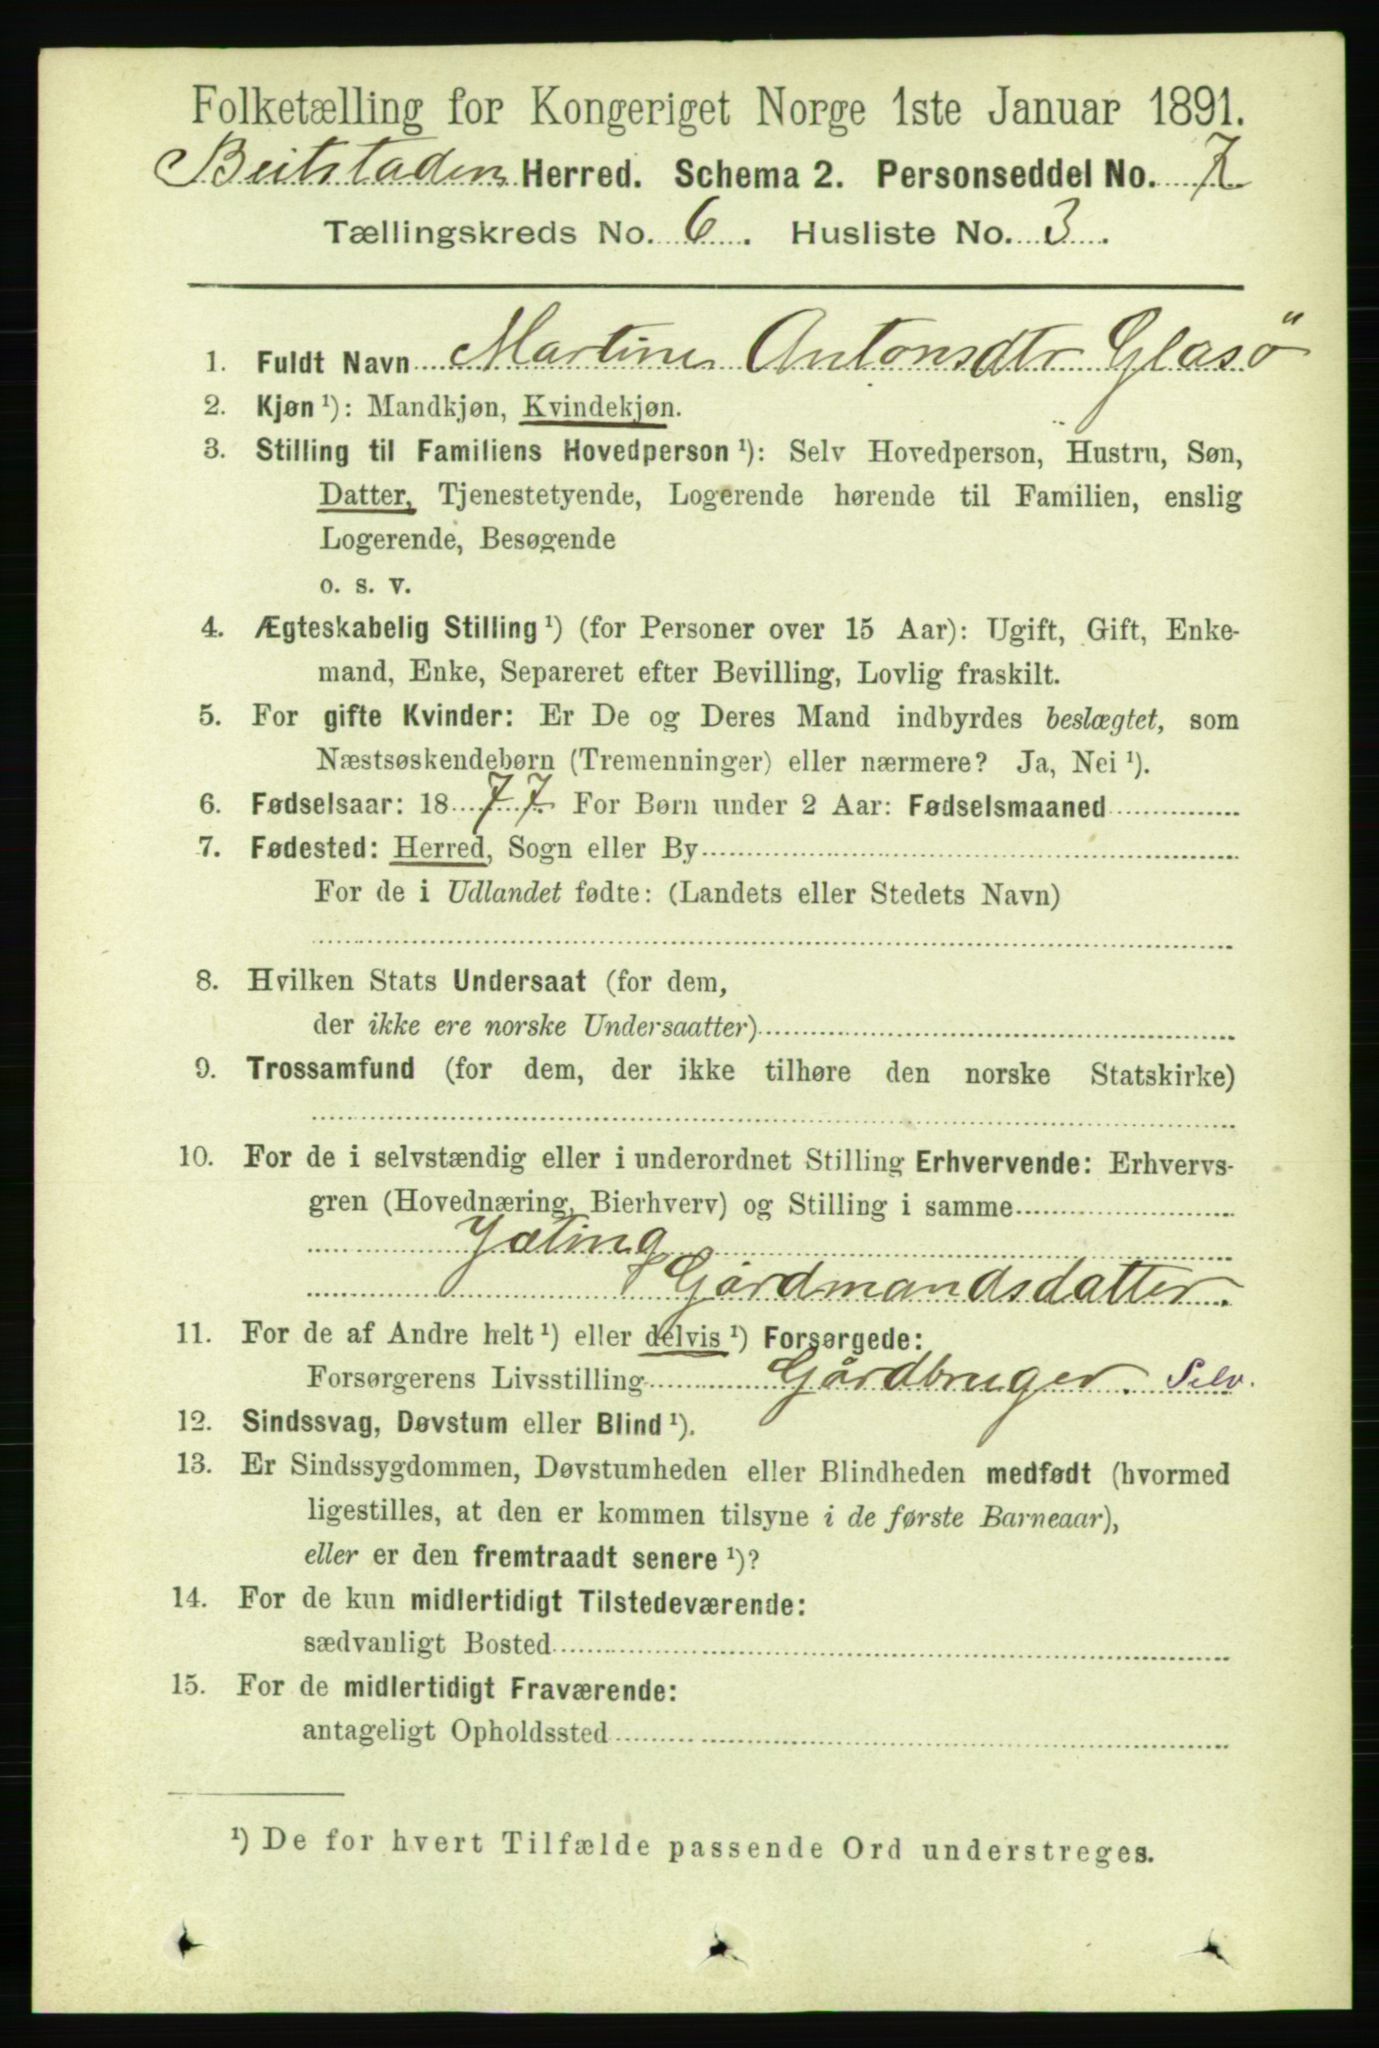 Folketælling for Kongeriget Norge 1ste Januar 1891.
Beitstaden Herred. Schema 2. Personseddel No. 7
Tællingskreds No. 6. Husliste No. 3.
1. Fuldt Navn Martine Antonsdtr Glasö
2. Kjøn ¹): Mandkjøn, Kvindekjøn.
3. Stilling til Familiens Hovedperson ¹): Selv Hovedperson, Hustru, Søn,
Datter, Tjenestetyende, Logerende hørende til Familien, enslig
Logerende, Besøgende
o. s. v.
4. Ægteskabelig Stilling ¹) (for Personer over 15 Aar): Ugift, Gift, Enke-
mand, Enke, Separeret efter Bevilling, Lovlig fraskilt.
5. For gifte Kvinder: Er De og Deres Mand indbyrdes beslægtet, som
Næstsøskendebørn (Tremenninger) eller nærmere? Ja, Nei ¹).
6. Fødselsaar: 1877. For Børn under 2 Aar: Fødselsmaaned
7. Fødested: Herred, Sogn eller By
For de i Udlandet fødte: (Landets eller Stedets Navn)
8. Hvilken Stats Undersaat (for dem,
der ikke ere norske Undersaatter)
9. Trossamfund (for dem, der ikke tilhøre den norske Statskirke)
10. For de i selvstændig eller i underordnet Stilling Erhvervende: Erhvervs-
gren (Hovednæring, Bierhverv) og Stilling i samme
Jæting
Gårdmandsdatter.
11. For de af Andre helt ¹) eller delvis ¹) Forsørgede:
Forsørgerens Livsstilling Gårdbruger. Selv.
12. Sindssvag, Døvstum eller Blind ¹).
13. Er Sindssygdommen, Døvstumheden eller Blindheden medfødt (hvormed
ligestilles, at den er kommen tilsyne i de første Barneaar),
eller er den fremtraadt senere ¹)?
14. For de kun midlertidigt Tilstedeværende:
sædvanligt Bosted
15. For de midlertidigt Fraværende:
antageligt Opholdssted
¹) De for hvert Tilfælde passende Ord understreges.